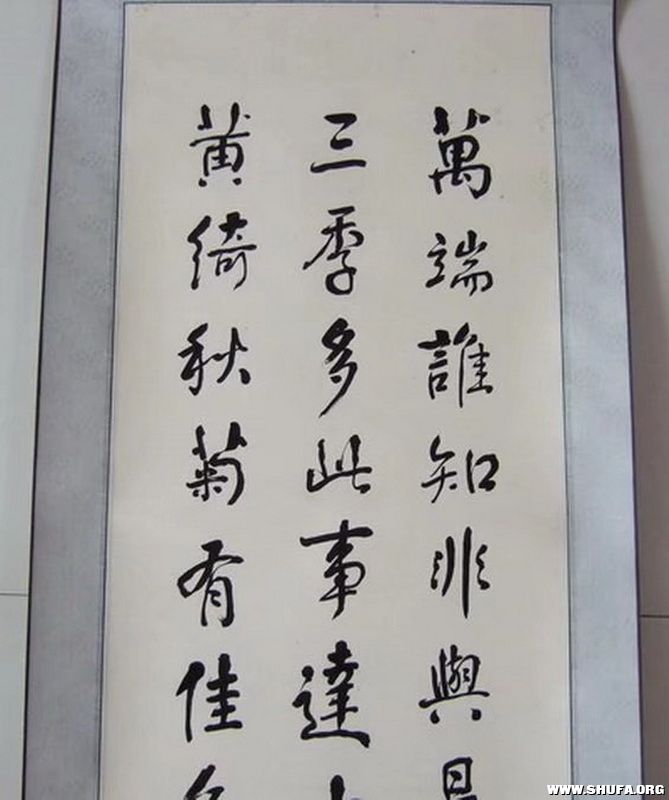 萬端誰知非與
三季多此事達
黄綺秋菊有佳
WWW.SHUFA.ORG